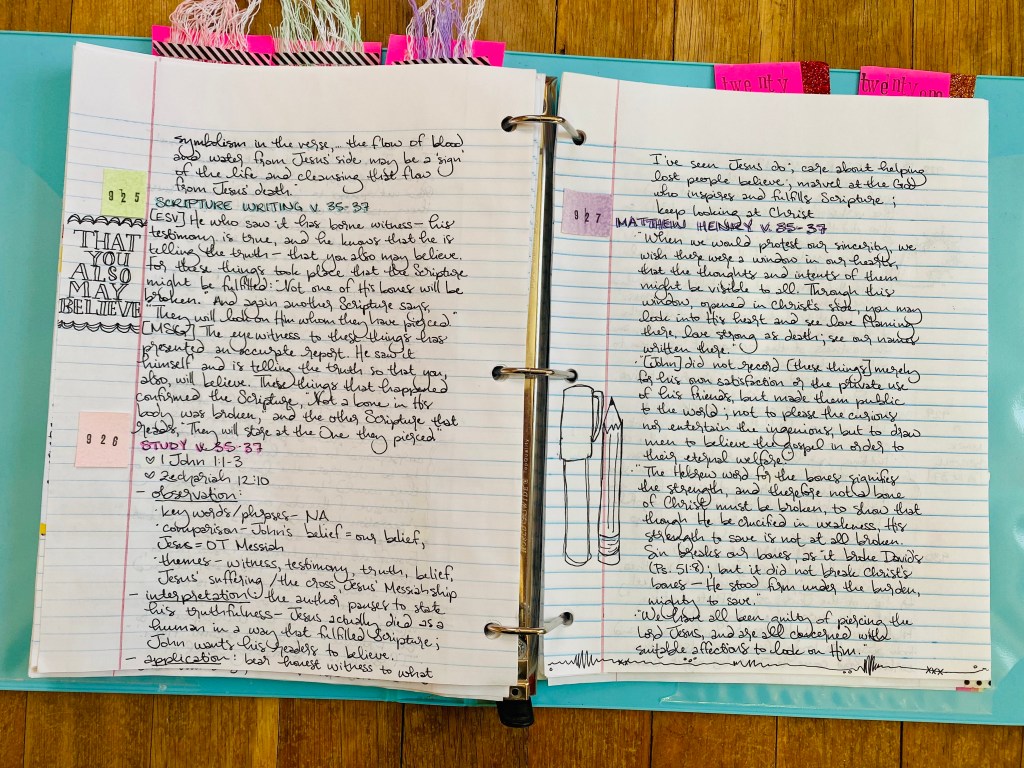 twenty
twenty one
symbolism in the verse,... the flow of blood
and water from Jesus' side may be a 'sign'
of the life and cleansing that flow
from Jesus' death."
925
SCRIPTURE WRITING v. 35-37
[ESV] He who saw it has borne witness - his
testimony is true, and he knows that he is
telling the truth - that you also may believe.
For these things took place that the Scripture
might be fulfilled: "Not one of His bones will be
broken." And again another Scripture says,
"They will look on Him whom they have pierced."
[MSG] The eyewitness to these things has
presented an accurate report. He saw it
himself and is telling the truth so that you,
also, will believe. These things that happened
confirmed the Scripture, "Not a bone in His
body was broken," and the other Scripture that
reads, "They will stare at the One they pierced."
THAT
YOU
ALSO
MAY
BELIEVE
926
STUDY v. 35-37
♡ 1 John 1:1-3
♡ Zechariah 12:10
- observation:
· key words/phrases - NA
· comparison - John's belief = our belief,
Jesus = OT Messiah
· themes - witness, testimony, truth, belief,
Jesus' suffering/the cross, Jesus' Messiahship
- interpretation: the author pauses to state
his truthfulness - Jesus actually died as a
human in a way that fulfilled Scripture;
John wants his readers to believe.
- application: bear honest witness to what
I've seen Jesus do; care about helping
lost people believe; marvel at the God
who inspires and fulfills Scripture;
keep looking at Christ
927
MATTHEW HENRY v. 35-37
· "When we would protest our sincerity, we
wish there were a window in our hearts,
that the thoughts and intents of them
might be visible to all. Through this
window, opened in Christ's side, you may
look into His heart and see love flaming
there, love strong as death; see our names
written there."
· "[John] did not record [these things] merely
for his own satisfaction or the private use
of his friends, but made them public
to the world; not to please the curious
nor entertain the ingenious, but to draw
men to believe the gospel in order to
their eternal welfare."
· "The Hebrew word for the bones signifies
the strength, and therefore not a bone
of Christ must be broken, to show that
though He be crucified in weakness, His
strength to save is not at all broken.
Sin breaks our bones, as it broke David's
(Ps. 51:8); but it did not break Christ's
bones - He stood firm under the burden,
mighty to save."
· "We have all been guilty of piercing the
Lord Jesus, and are all concerned with
suitable affections to look on Him."
xxx